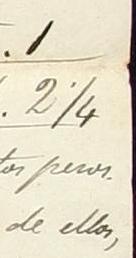 . 1
. 2 1/4
tos pesos.
de ellos,